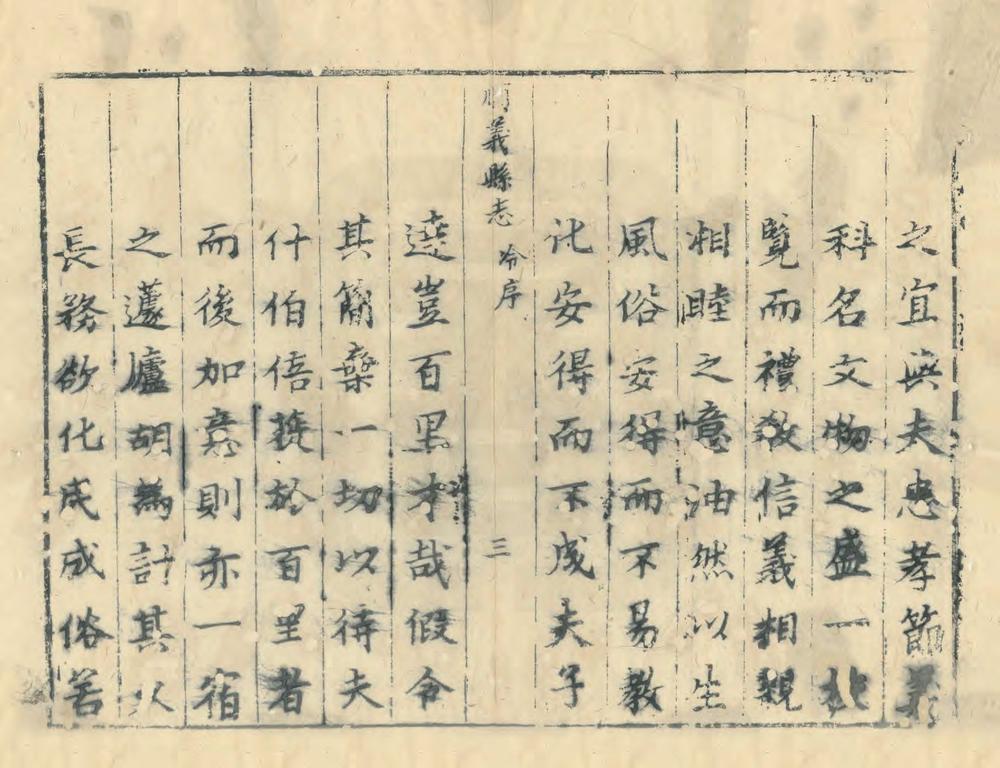 之宜與夫忠孝節義
科名文物之盛一批
覽而禮教信義相親
相睦之意油然以生
風俗安得而不易教
化安得而不成夫子
順義縣志
冷序
三
遠豈百里才哉假令
其簡棄一切以待夫
什伯倍蓰於百里者
而後加意則亦一宿
之蘧廬胡為計其以
長務欲化成成俗若